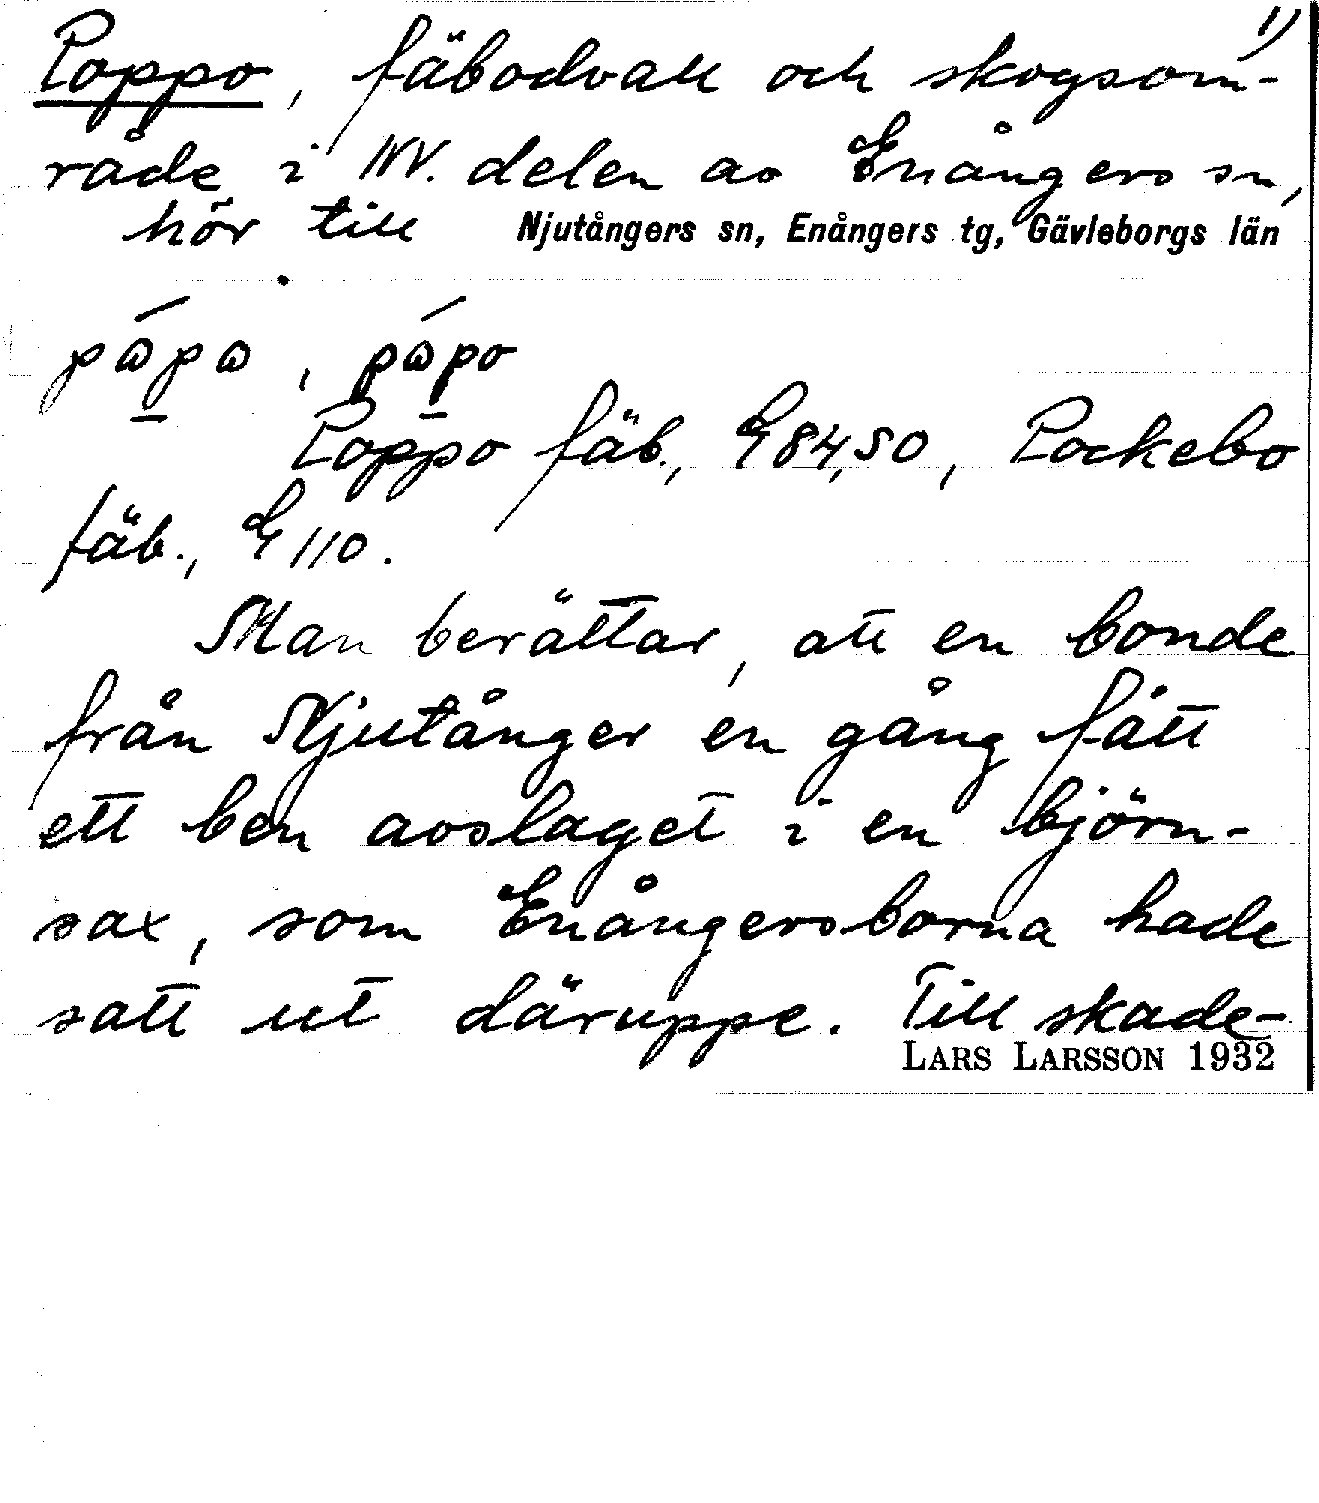 1)
Poppo, fäbodvall och skogsom-
råde i NV. delen av Enångers sn,
hör till Njutångers sn, Enångers tg, Gävleborgs län
Poppo fäb., E 84,50, Pockebo
fäb., E 110.
Man berättar, att en bonde
från Njutånger en gång fått
ett ben avslaget i en björn-
sax, som Enångersborna hade
satt ut däruppe. Till skade-
LARS LARSSON 1932